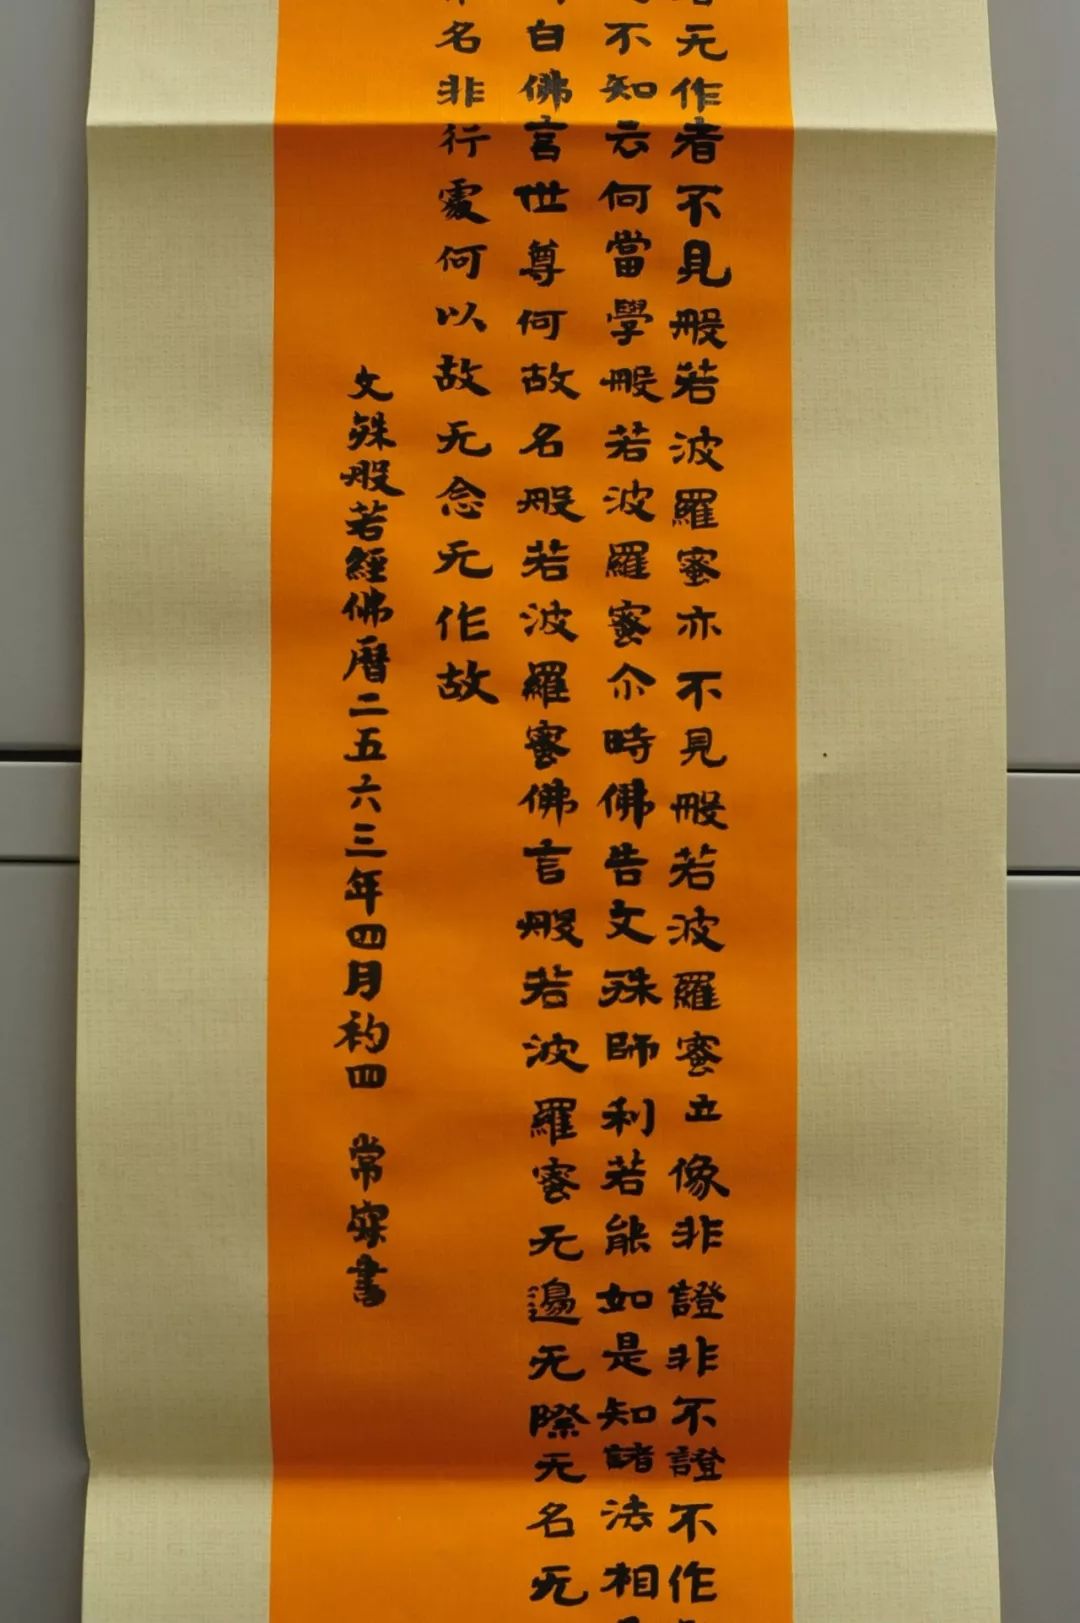 无作者不見般若波羅蜜亦不見般若波羅蜜立像非證非不證不作
不知云何當學般若波羅蜜尒時佛告文殊師利若能如是知諸法相
白佛言世尊何故名般若波羅蜜佛言般若波羅蜜无邊无際无名无
名非行處何以故无念无作故
文殊般若經佛曆二五六三年四月初四 常寂書